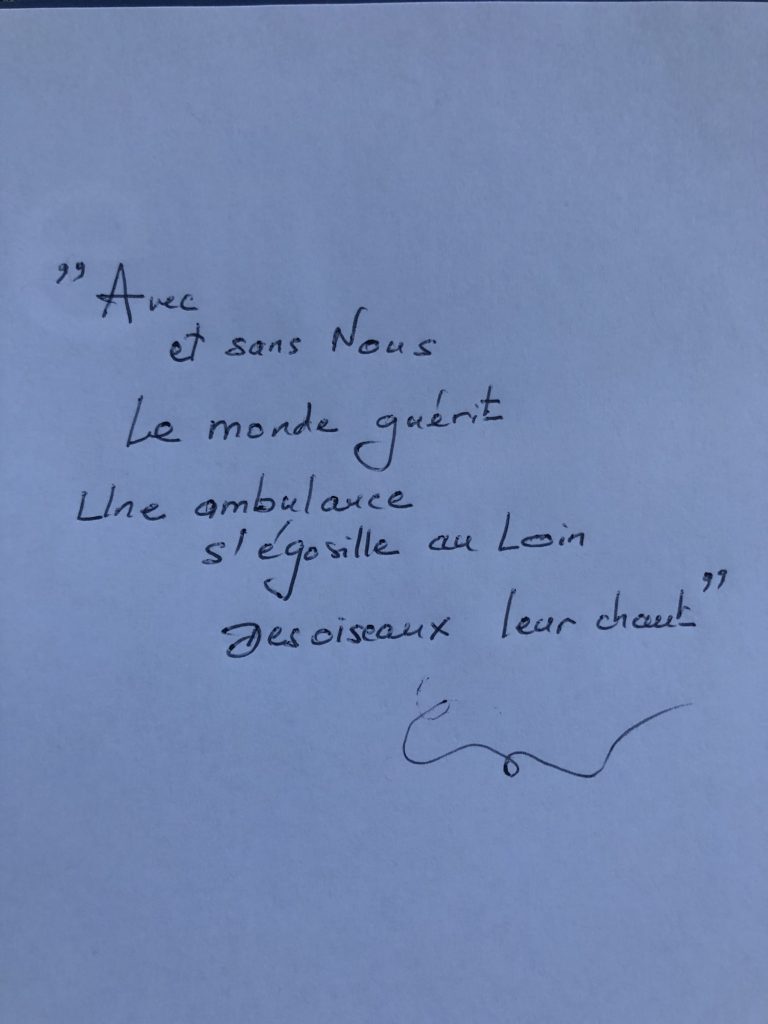 " Avec
et sans Nous
Le monde guérit
Une ambulance
s'égosille au Loin
Des oiseaux leur chant "